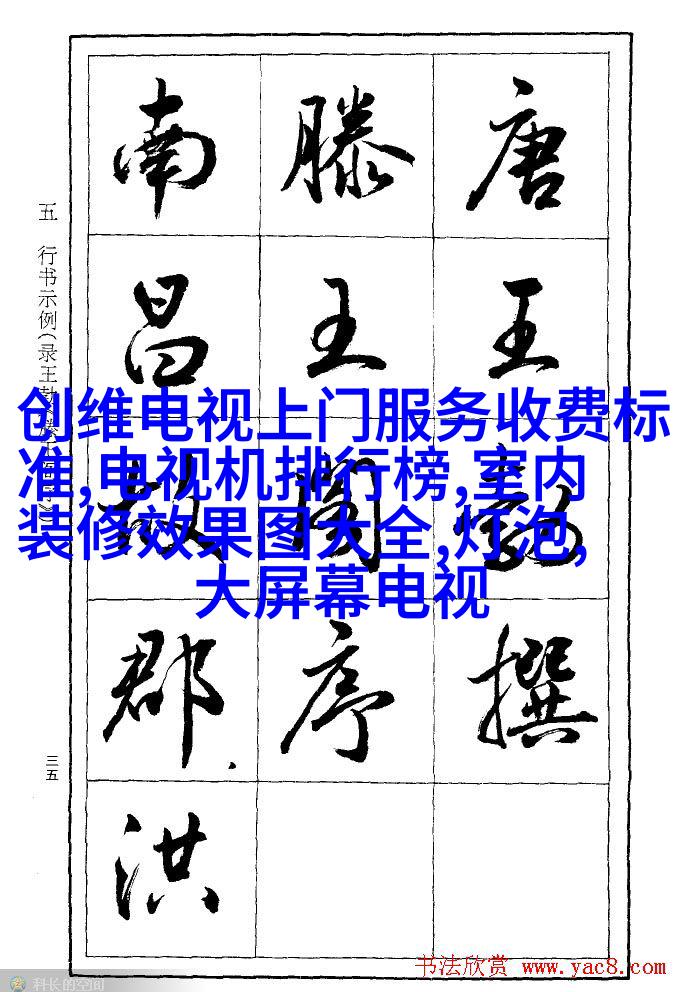 唐王勃撰
滕王阁序
南昌故郡.洪
五 行书示例(录王勃《滕王阁序》)
三五
创维电视上门服务收费标
准,电视机排行榜,室内
装修效果图大全,灯泡,
大屏幕电视
书法欣赏 www.yac8.com
科长的空间